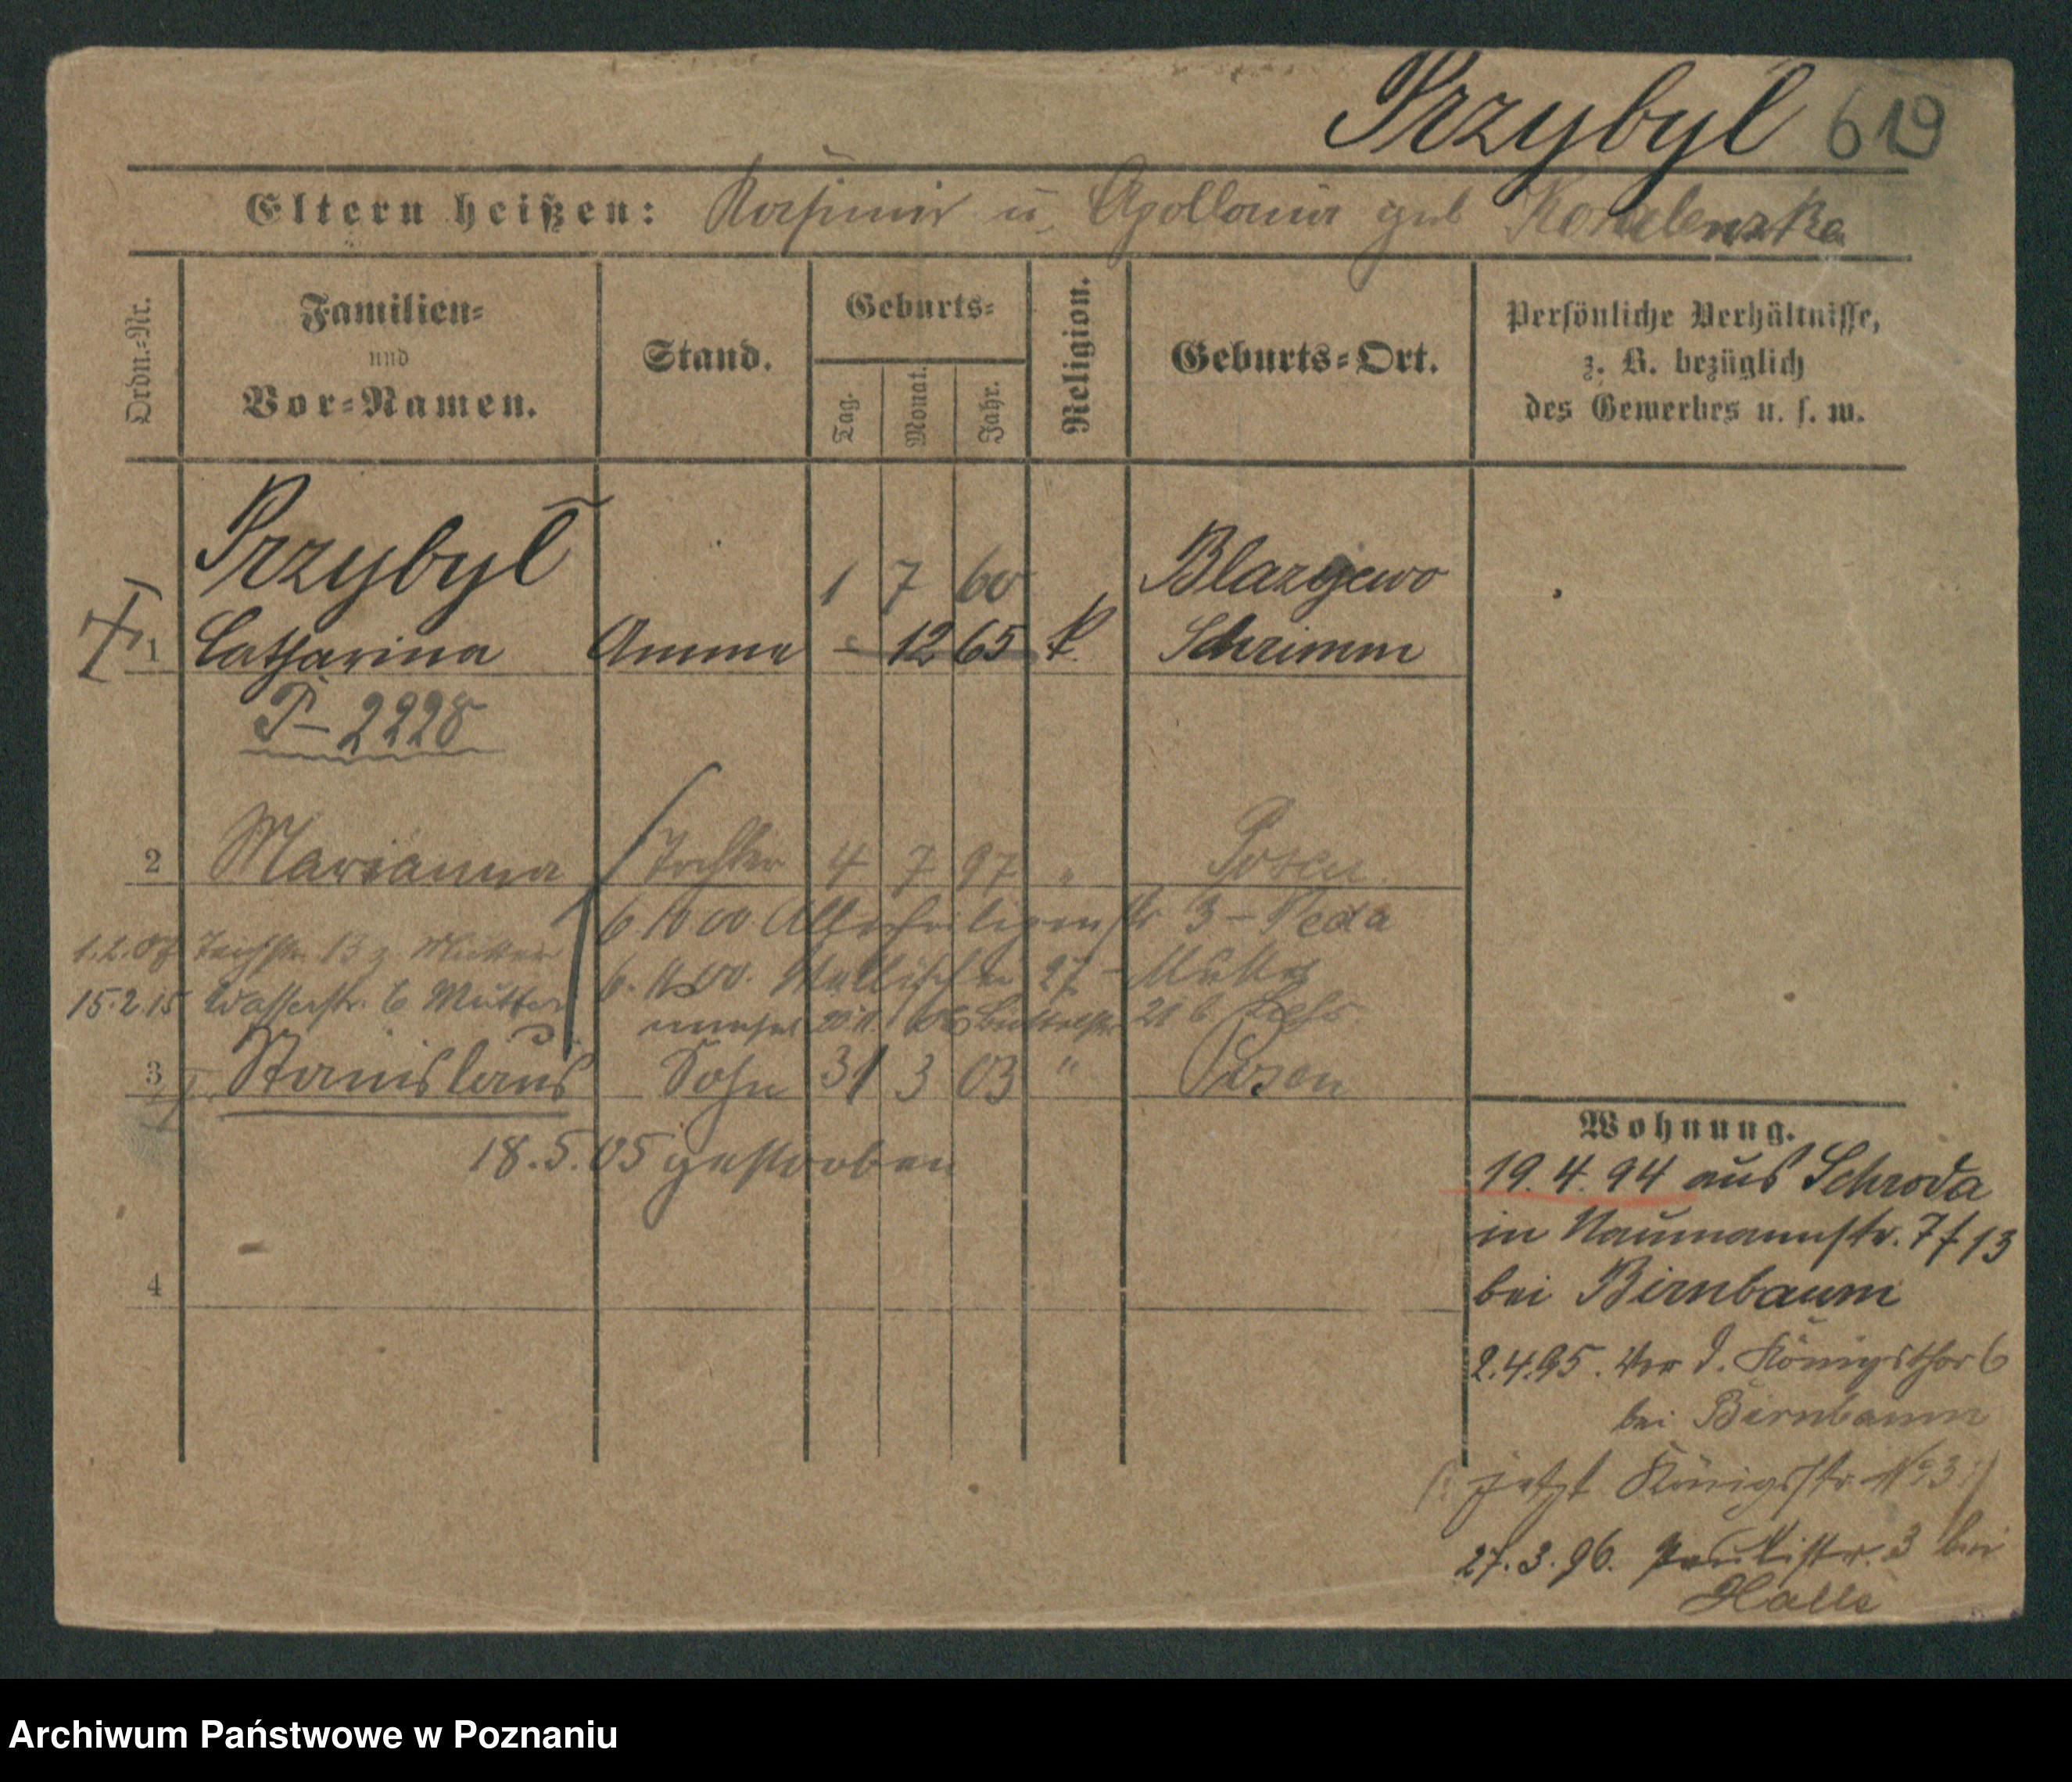 Przybyl 619
Eltern heißen: Kasimir u. Apollonia geb
Ordn.-Nr.
Familien-
und
Vor-Namen.
Stand.
Geburts-
Tag.
Monat.
Jahr.
Religion.
Geburts-Ort.
Persönliche Verhältnisse,
z. B. bezüglich
des Gewerbes u. s. w.
Przybyl 1 7 60 Blazejewo
1 Catharina Amme - 12 65 k. Schrimm
P-2228
2 Marianna Tochter 4 7 97 " Posen
6. 10 00. Allerheiligenstr 3 -
1.2.07 Teichstr. 13 z. Mutter
6. 11. 00. Wallischei 27 - Mutter
15.2.15 Wasserstr. 6 Mutter
3 Stanislaus Sohn 31 3 03 " Posen
18.5.05 gestorben
4
Wohnung.
19. 4. 94 aus Schroda
in Naumannstr. 7 f 13
bei Birnbaum
2.4.95. Vor d. Königsthor 6
bei Birnbaum
(: jetzt Königsstr. No. 3 :)
27. 3. 96. Paulistr. 3 bei
Halle
Archiwum Państwowe w Poznaniu